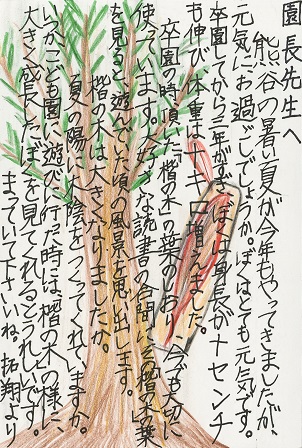 園長先生へ
熊谷の暑い夏が今年もやってきましたが、
元気にお過ごしでしょうか。ぼくはとても元気です。
卒園してから三年がすぎ、ぼくは身長が十センチ
も伸び、体重は八キロ増えました。
卒園の時、頂いた「楷の木」の葉のしおり、今でも大切に
使っています。大好きな読書の合間にその楷の木の葉
を見ると、遊んでいた頃の風景を思い出します。
楷の木は大きくなりましたか。
夏の陽に木陰をつくってくれてますか。
いつかこども園に遊びに行った時には楷の木の様に、
大きく成長したぼくを見てくれるとうれしいです。
まっていて下さいね。拓翔より